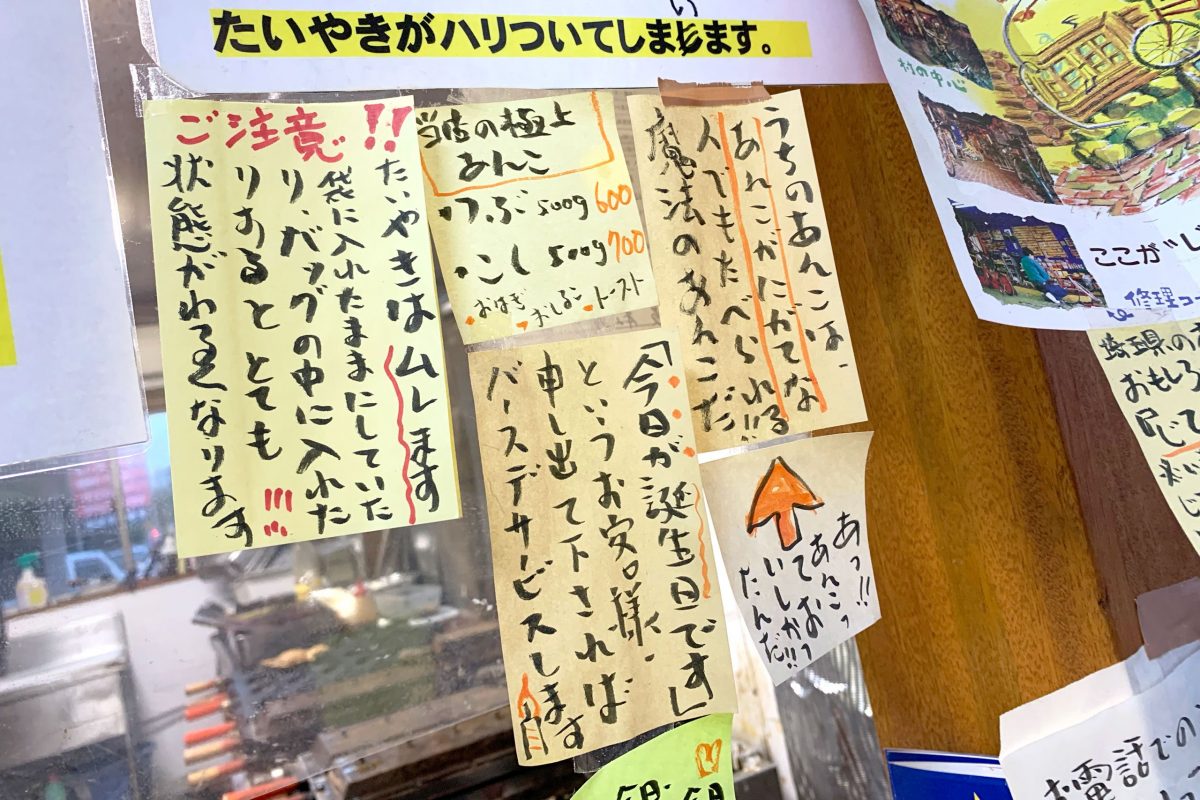 い
たいやきがハリついてしまいます。
ご注意!!
たいやきはムレます
袋に入れたままにしていた
り、バッグの中に入れた
りするととても
状態がわるくなります!!!
当店の極上
あんこ
つぶ500g 600
こし500g 700
・おはぎ・おしるこ・トースト
うちのあんこは、
あんこがにがてな
人でもたべられる!!
魔法のあんこだ
「今日が誕生日です」
というお客様、
申し出て下されば
バースデサービスします
あっ!!
あんこっ
ておっ
いしかっ
たんだ!!
村の中心
ここが“じ
修理コ
埼玉県の
おもしろ
お電話での